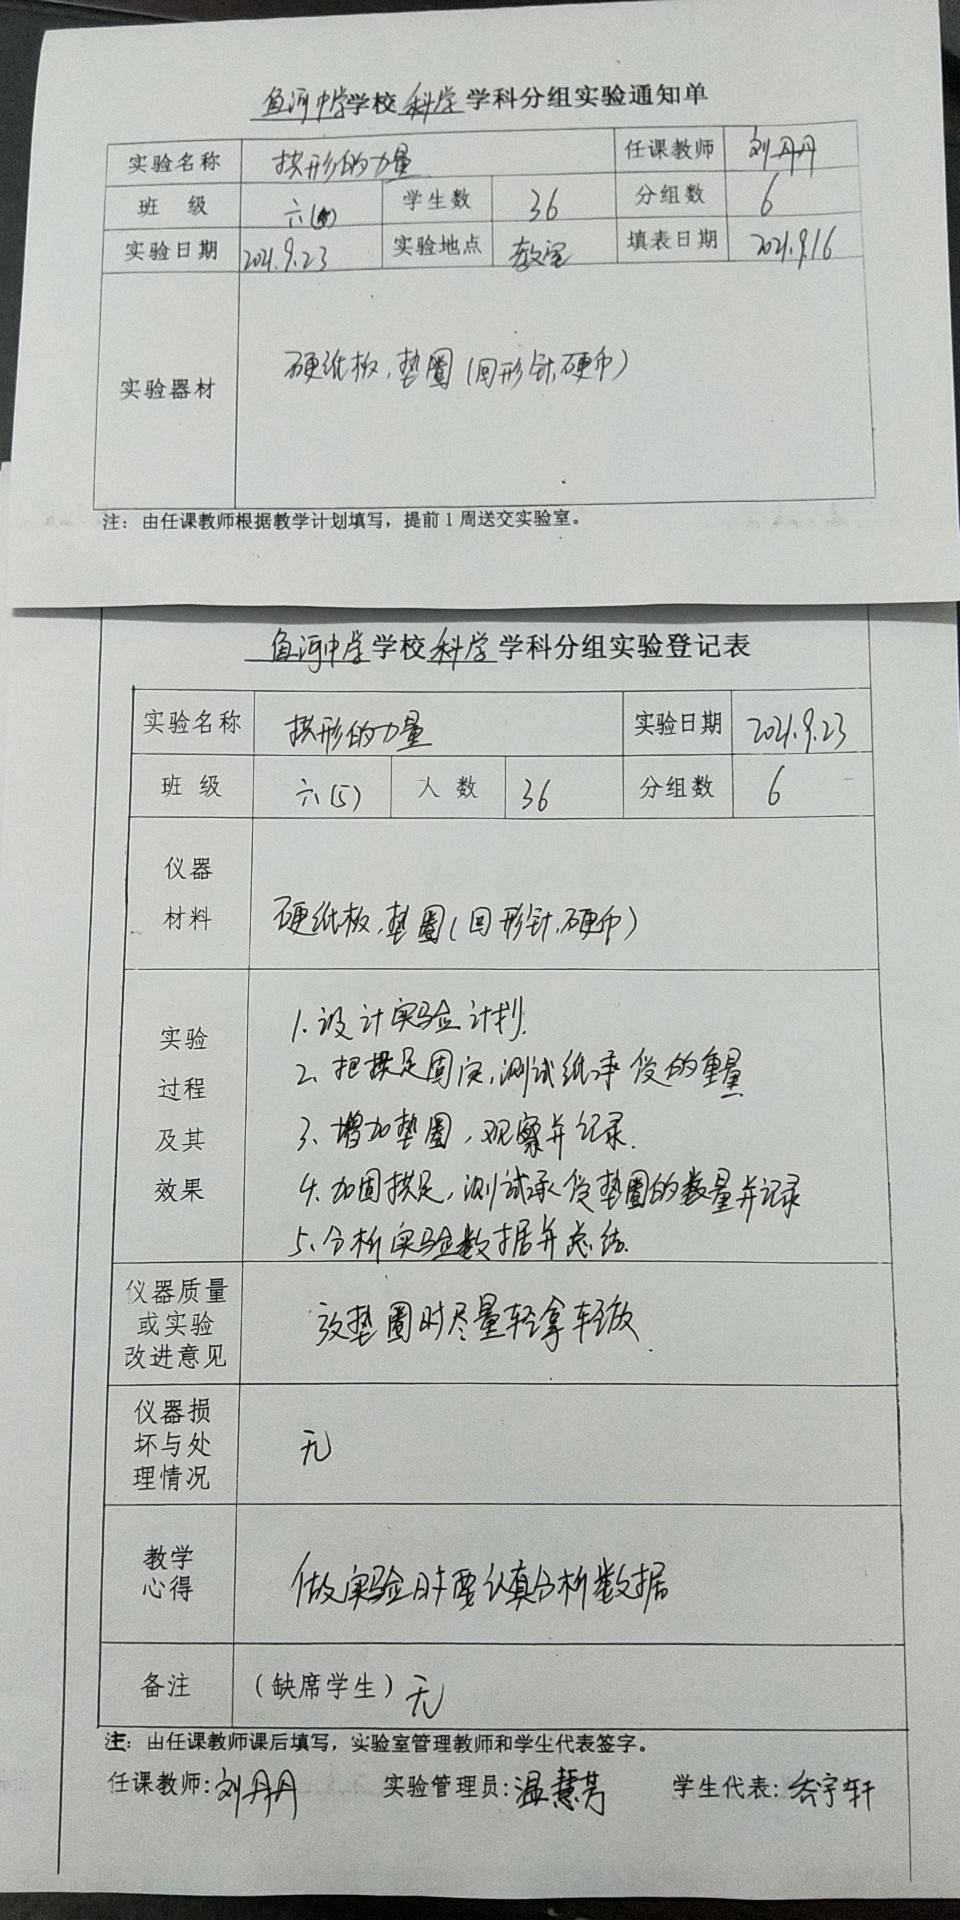 鱼河中学学校科学学科分组实验通知单
实验名称 拱形的力量 任课教师 刘丹丹
班 级 六( ) 学生数 36 分组数 6
实验日期 2021.9.23 实验地点 教室 填表日期 2021.9.16
实验器材 硬纸板,垫圈(回形针,硬币)
注：由任课教师根据教学计划填写，提前1周送交实验室。
鱼河中学学校科学学科分组实验登记表
实验名称 拱形的力量 实验日期 2021.9.23
班 级 六(5) 人 数 36 分组数 6
仪器
材料 硬纸板,垫圈(回形针,硬币)
实验
过程
及其
效果
1.设计实验计划.
2、把拱足固定,测试纸承受的重量
3、增加垫圈,观察并记录.
4.加固拱足,测试承受垫圈的数量并记录
5、分析实验数据并总结.
仪器质量
或实验
改进意见
放垫圈时尽量轻拿轻放.
仪器损
坏与处
理情况
无
教学
心得
做实验时要认真分析数据
备注 （缺席学生）无
注：由任课教师课后填写，实验室管理教师和学生代表签字。
任课教师:刘丹丹 实验管理员:温慧芳 学生代表: 宇轩